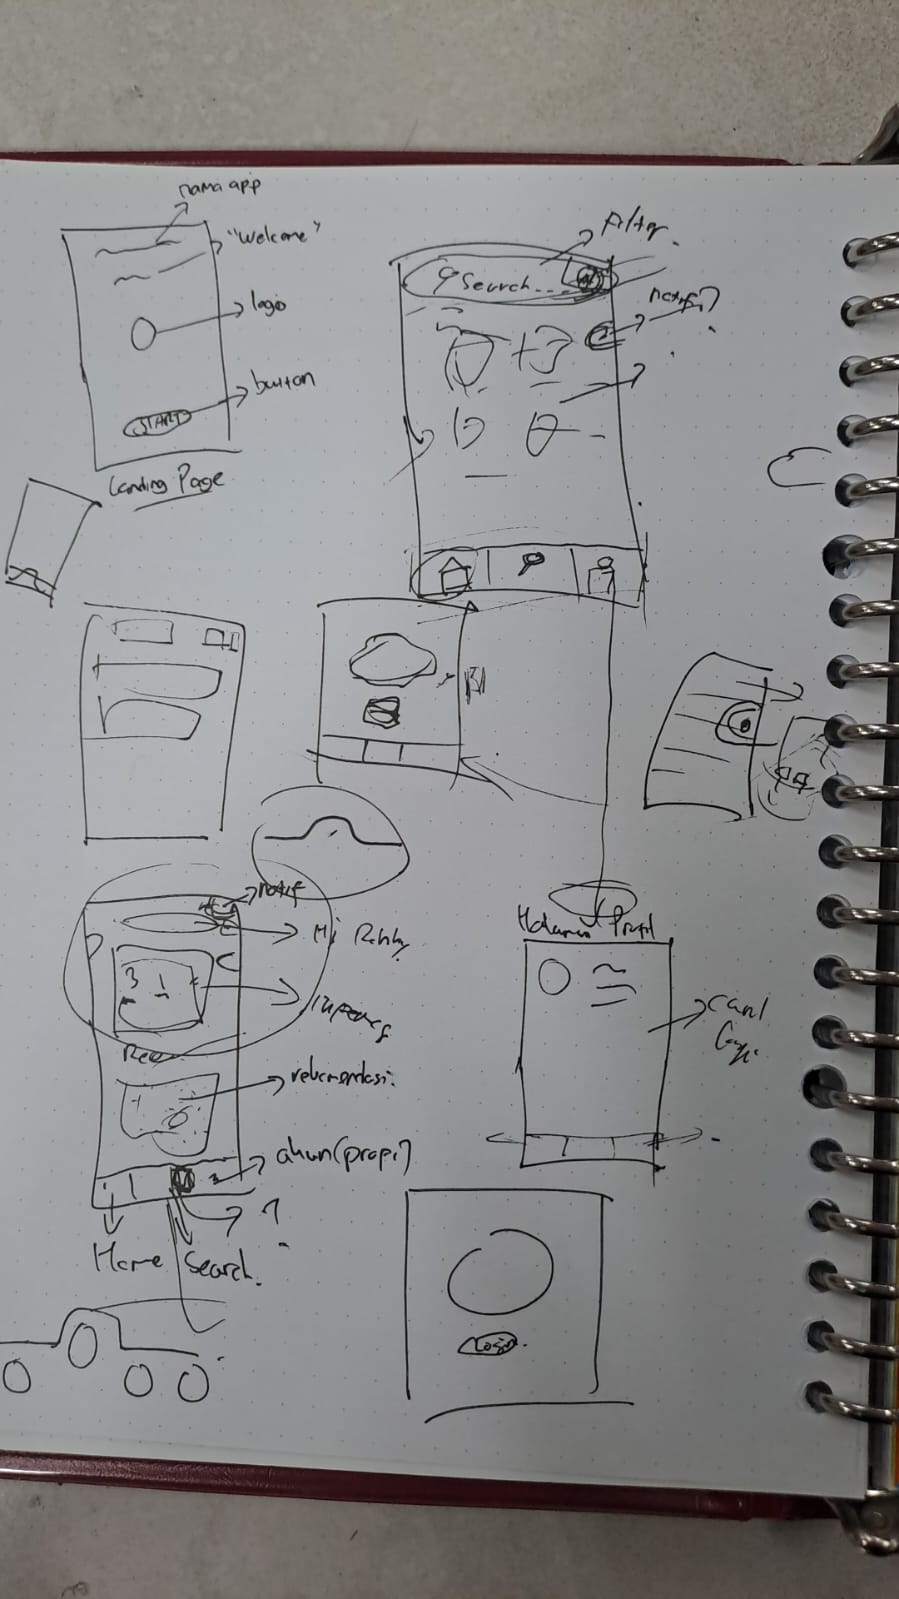 nama app
"Welcome"
logo
button
START
Landing Page
Filter.
Search...
notif?
notif
Hi
rekomendasi
akun (propil)
?
Home
Search.
Halaman Profil
Login